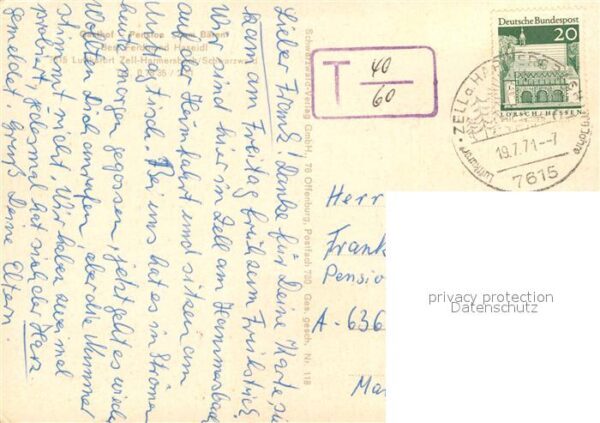 Gasthof - Pension "zum Bären"
Bes. Ferdinand Haseidl
7615 Luftkurort Zell-Harmersbach/Schwarzwald
Lieber Frank! Danke für Deine Karte, sie
kam am Freitag früh zum Frühstück.
Wir sind hier in Zell am Harmersbach
auf der Heimfahrt und sitzen am
Mittagstisch. Bei uns hat es in Strömen
heute morgen gegossen, jetzt geht es wieder.
Wollten Dich anrufen, aber die Nummer
stimmt nicht. Wir haben zweimal
probiert, jedesmal hat sich der Harz
gemeldet. Gruß Deine Eltern.
Schwarzwaldverlag GmbH., 76 Offenburg, Postfach 760 Ges. gesch. Nr. 118
T 40
60
Deutsche Bundespost
20
LORSCH/HESSEN
ZELL a. HARMERSBACH
Luftkurort
19.7.71--7
7615
Herr
Frank
Pensio
A-636
Ma
privacy protection
Datenschutz